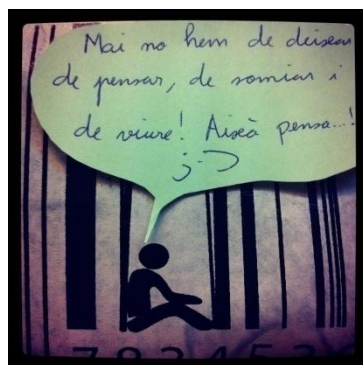 Mai no hem de deixar
de pensar, de somiar i
de viure! Això pensa...!
;-)
782453